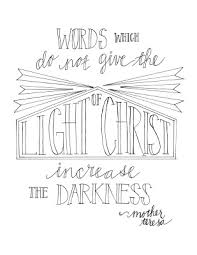 WORDS WHICH
do not give the
OF
LIGHT CHRIST
increase
THE DARKNESS
~mother
teresa